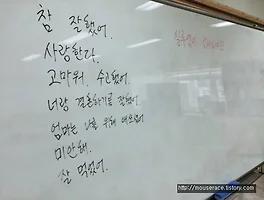 참 잘했어.
사랑한다.
고마워. 수고했어.
너랑 결혼하기를 잘했어.
엄마는 나를 위해
미안해.
잘 먹었어.
http://mouserace.tistory.com